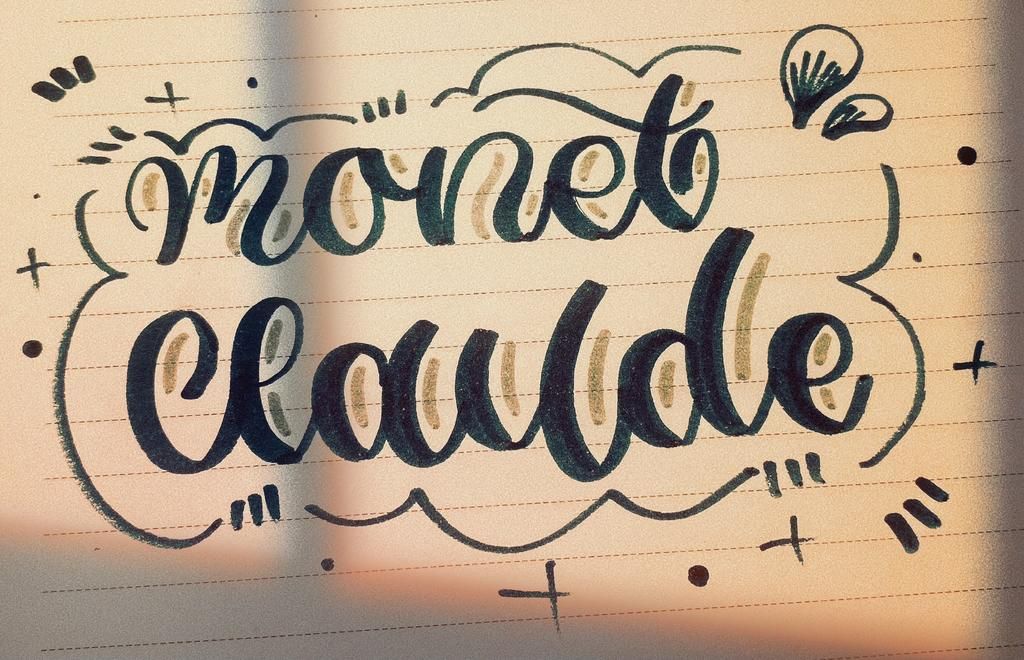 monet
Claude